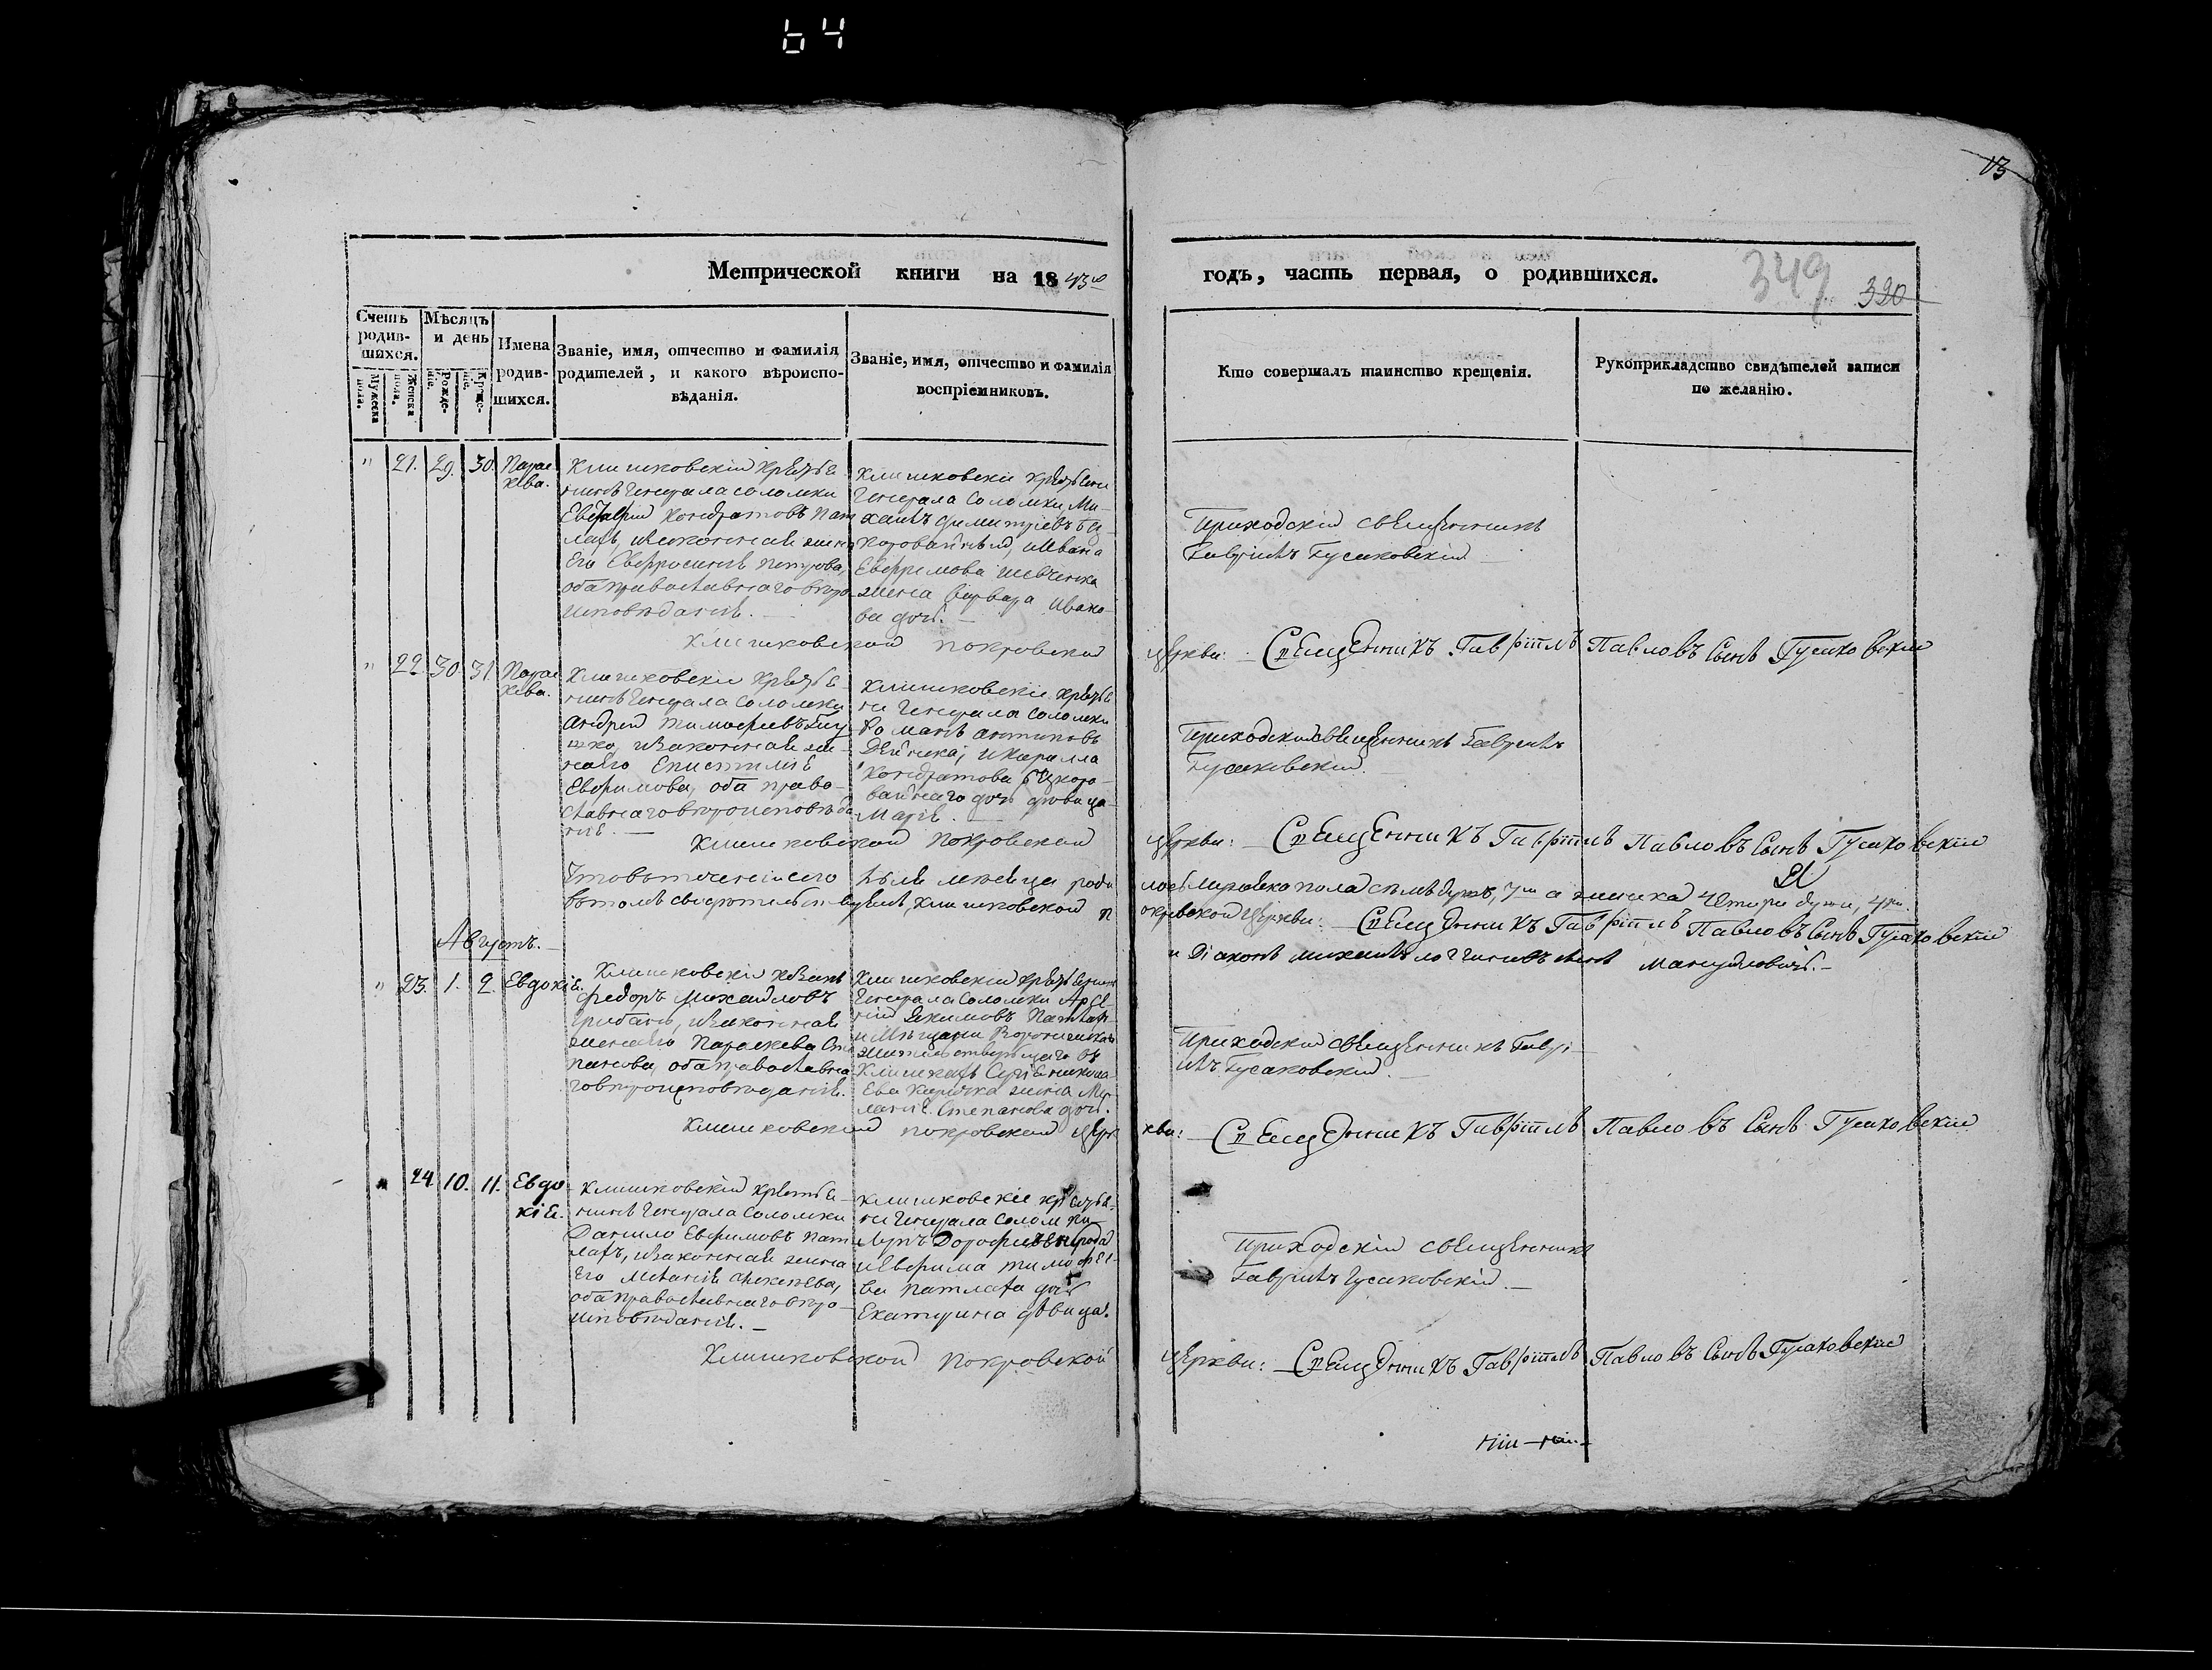 64
13
Метрической книги на 1843 годъ, часть первая, о родившихся.
349
320
Счетъ родив-шихся.
Мужеска пола.
Женска пола.
Мѣсяцъ и день
Рожде-нія.
Креще-нія.
Имена родив-шихся.
Званіе, имя, отчество и фамилія родителей, и какого вѣроиспо-вѣданія.
Званіе, имя, отчество и фамилія воспріемниковъ.
Кто совершалъ таинство крещенія.
Рукоприкладство свидѣтелей записи по желанію.
" 21. 29. 30. Парас
кева.
Клишковскій крестья
нинъ Генерала Соломки
Евстафій Кондратовъ Пат
лахъ, и законная жена
Его Евфросинія Петрова,
оба православнаго вѣро
исповѣданія. —
Клишковскіе крестьяне
Генерала Соломки, Ми-
хаилъ Димитріевъ
и Ивана
Ефремова Шевченка
жена Варвара Ивано-
ва дочь. —
Приходскій священникъ
Гавріилъ Гусаковскій —
Клишковской Покровской церкви: Священникъ Гавріилъ Павловъ Сынъ Гусаковскій
" 22. 30. 31. Парас
кева.
Клишковскій крестья
нинъ Генерала Соломки
Андрей Тимофеевъ
и законная же-
на его Епистимія
Ефимова, оба право-
славнаго вѣроисповѣда
нія. —
Клишковскіе крестья
не Генерала Соломки
Романъ Антиповъ
Дейнека, и Кирилла
Кондратова
дочь дѣвица
Марія. —
Приходскій священникъ Гавріилъ
Гусаковскій.
Клишковской Покровской церкви: Священникъ Гавріилъ Павловъ Сынъ Гусаковскій
Что въ теченіи сего Іюля мѣсяца роди лось мужеска пола семь душъ, 7 а женска четыри души, 4
въ томъ свидѣтельствуемъ, Клишковской Покровской Церкви: Священникъ Гавріилъ Павловъ Сынъ Гусаковскій
и Діаконъ Михаилъ Мануиловичъ. —
Августъ. —
" 23. 1. 2. Евдокія.
Клишковскій козакъ
Федоръ Михайловъ
Грибанъ, и законная
жена его Параскева Сте
панова, оба православна
го вѣроисповѣданія.
Клишковскій крестьянинъ
Генерала Соломки Арсе-
ній Якимовъ Патлахъ
и Мѣщанина Воронежскаго
въ
Клишкахъ
жена Ме-
ланія Степанова дочь.
Приходскій священникъ Гаврі-
илъ Гусаковскій. —
Клишковской Покровской Церкви: Священникъ Гавріилъ Павловъ Сынъ Гусаковскій
" 24. 10. 11. Евдо
кія.
Клишковскій крестья-
нинъ Генерала Соломки
Данило Ефимовъ Пат
лахъ, и законная жена
Его Меланія Алексѣева,
оба православнаго вѣро-
исповѣданія. —
Клишковскіе крестья-
не Генерала Соломки
Дорофеевъ
и Ефима Тимофее-
ва Патлаха дочь
Екатерина дѣвица.
Приходскій священникъ
Гавріилъ Гусаковскій. —
Клишковской Покровской Церкви: Священникъ Гавріилъ Павловъ Сынъ Гусаковскій